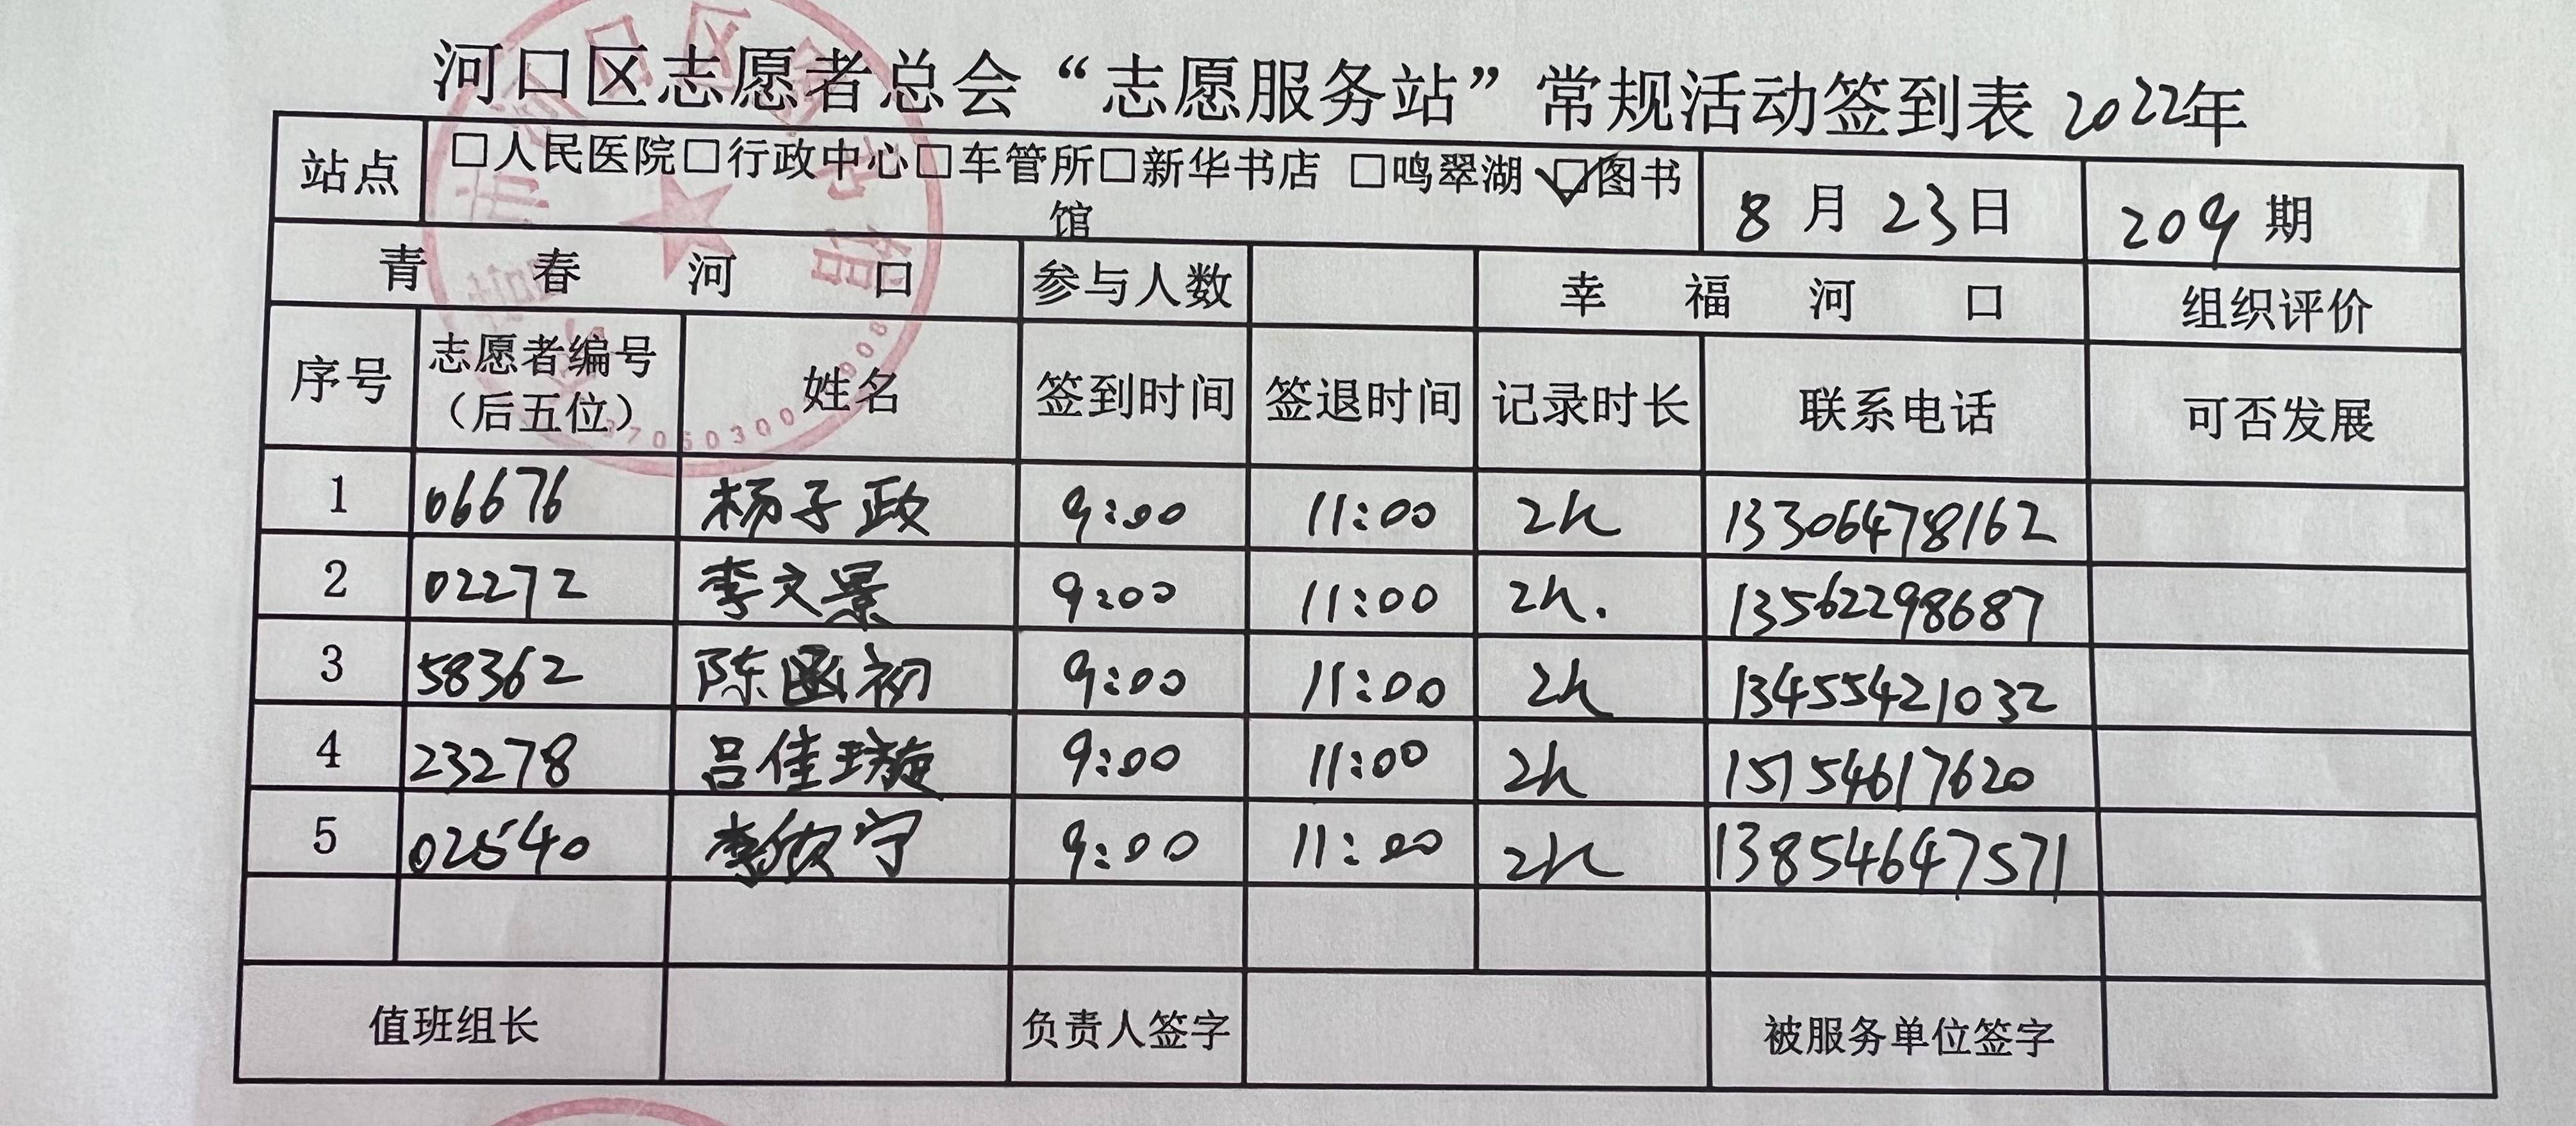 河口区志愿者总会“志愿服务站”常规活动签到表 2022年
站点 □人民医院□行政中心□车管所□新华书店 □鸣翠湖 ☑图书馆 8月23日 209期
青春河口 参与人数 幸福河口 组织评价
序号 志愿者编号（后五位） 姓名 签到时间 签退时间 记录时长 联系电话 可否发展
1 06676 杨子政 9:00 11:00 2h 13306478162
2 02272 李文景 9:00 11:00 2h. 13562298687
3 58362 陈函初 9:00 11:00 2h 13455421032
4 23278 吕佳璇 9:00 11:00 2h 15154617620
5 02540 李欣宁 9:00 11:00 2h 13854647571
值班组长 负责人签字 被服务单位签字